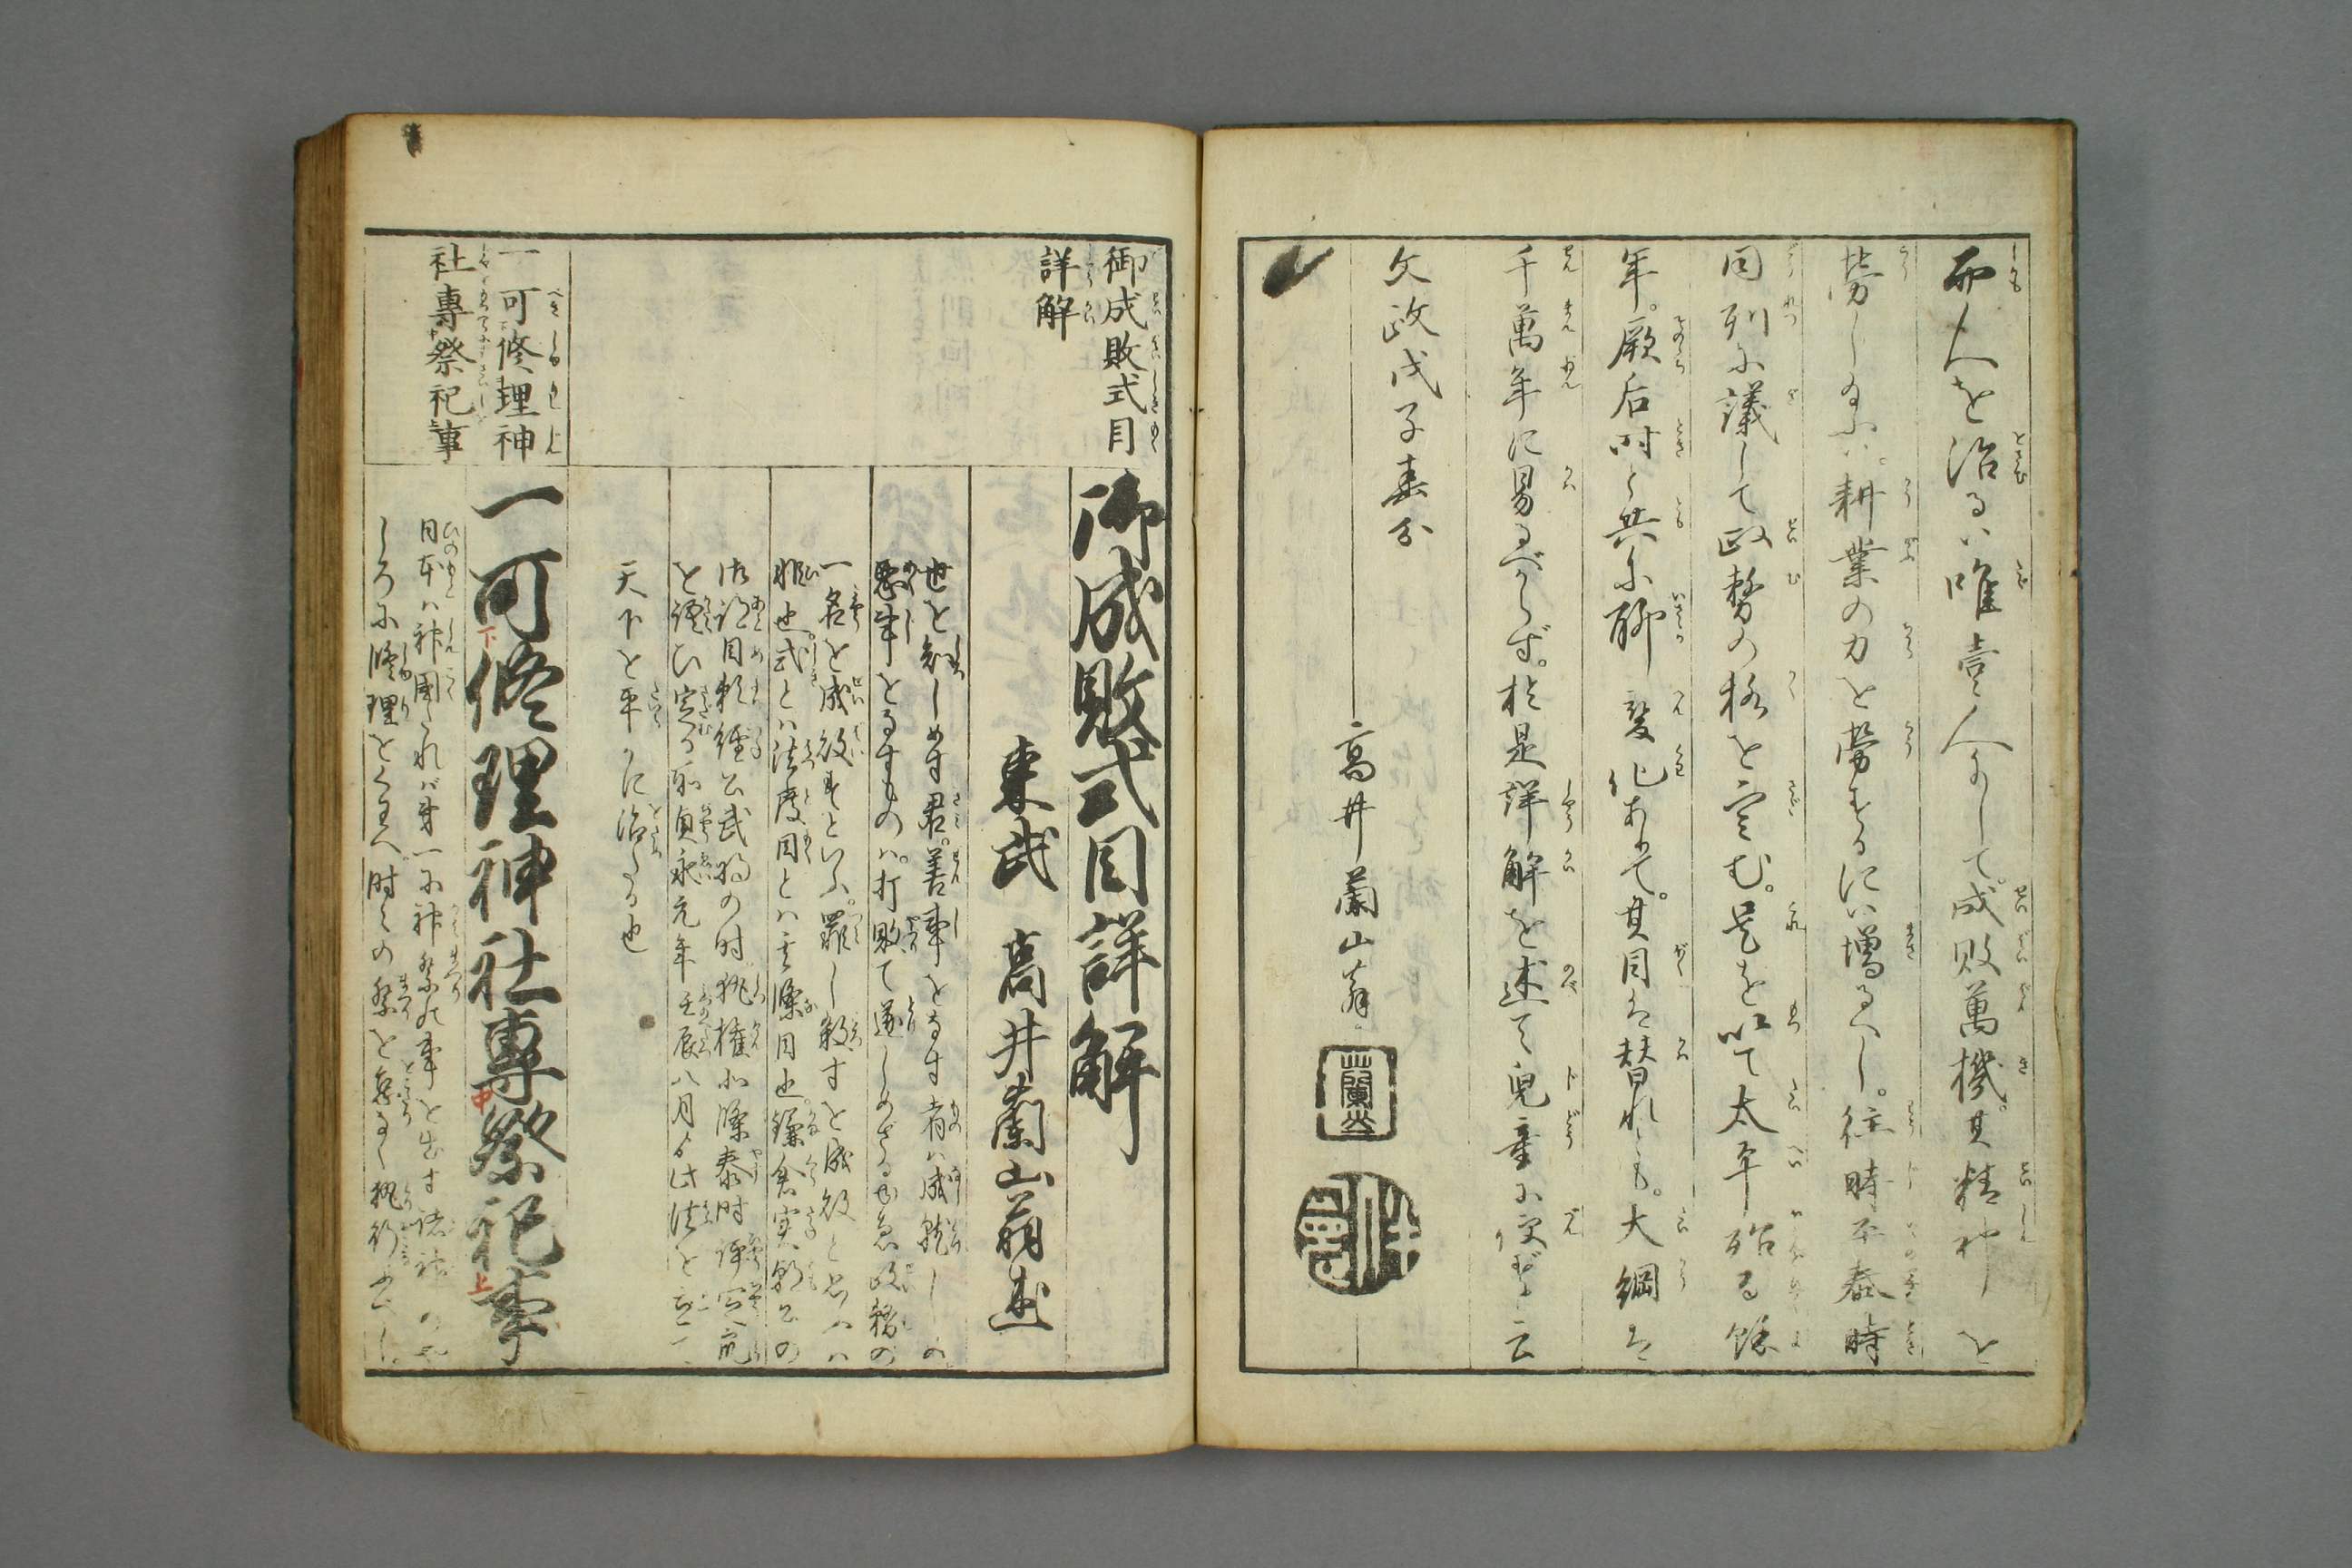 而人を治るハ唯壹人にして。成敗萬機。其精神を
勞し給ふハ。耕業の力を勞するにハ増るべし。往時平泰時
同列に議して政務の格を定む。是を以て太平殆る餘
年。厥后時と共に聊変化ありて。其目は替れども。大綱は
千萬年に易るべからず。於是詳解を述て兒童に便ずと云
文政戊子春分
高井蘭山翁
御成敗式目
詳解
御成敗式目詳解
東武 高井蘭山翁述
世を知しめす君。善事をなす者ハ成就しめ。
悪事をなすものハ。打敗て遂しめざるを政務の
一名を成敗といふ。罪し殺すを成敗と思ハハ
非也。式とハ法度目とハ其條目也。鎌倉実朝公の
御認目頼経公武将の时執権北條泰时評定衆
と謀ひ定る所貞永元年壬辰八月より此法を
天下を平かに治たる也
一可修理神
社專祭祀事
一可修理神社專祭祀事
下
中
上
日本ハ神國なれバ第一に神祭の事を出す諸社の
しろに修理をくわへ时々の祭を無く執行ふべし